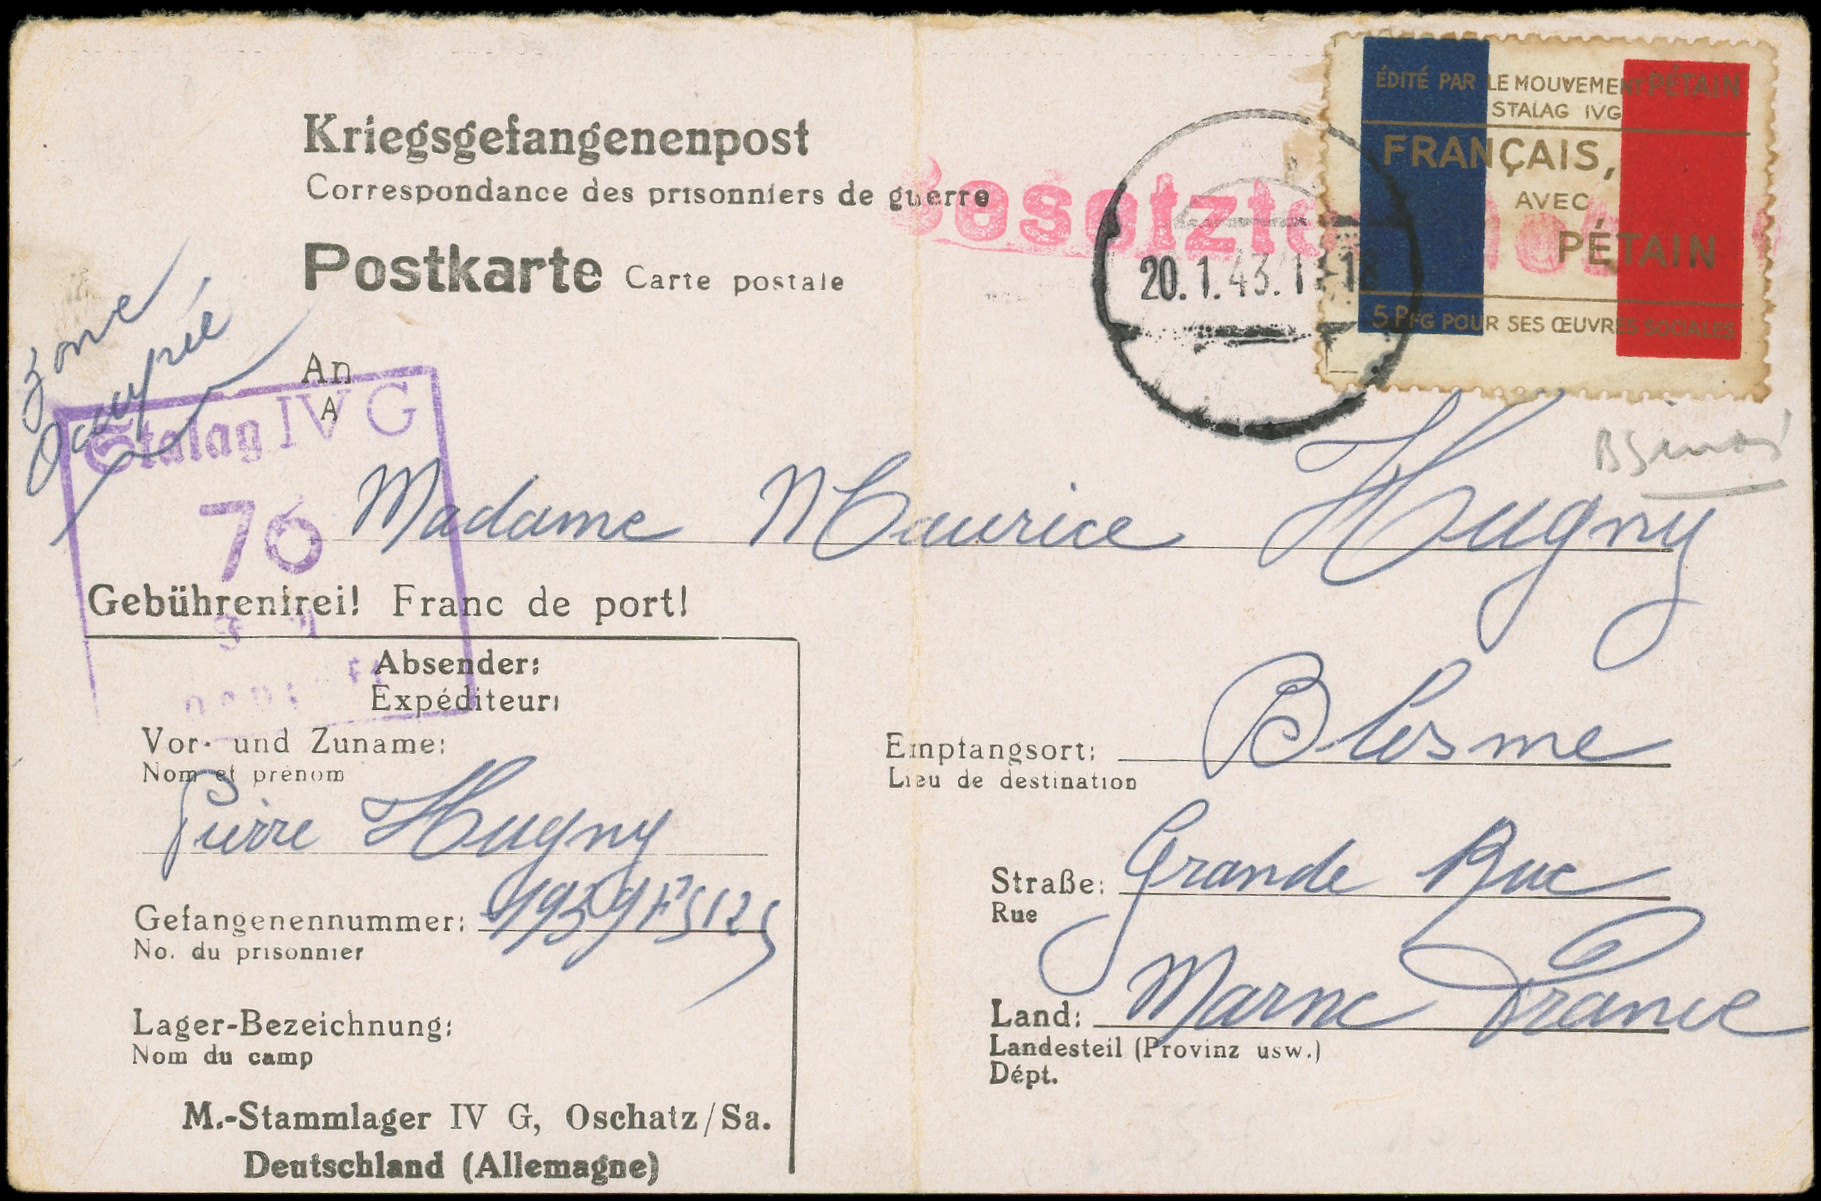 Kriegsgefangenenpost
Correspondance des prisonniers de guerre
Postkarte Carte postale
ÉDITÉ PAR LE MOUVEMENT PÉTAIN
STALAG IVG
FRANÇAIS,
AVEC
PÉTAIN
5 PFG POUR SES ŒUVRES SOCIALES
20.1.43.
zone
occupée
An
A
Stalag IV G
76
Madame Maurice Hugny
Gebührenfrei! Franc de port!
Absender:
Expéditeur:
Vor- und Zuname:
Nom et prénom
Pierre Hugny
Gefangenennummer:
No. du prisonnier
Lager-Bezeichnung:
Nom du camp
M.-Stammlager IV G, Oschatz/Sa.
Deutschland (Allemagne)
Empfangsort: Blesme
Lieu de destination
Straße: Grande Rue
Rue
Land: Marne France
Landesteil (Provinz usw.)
Dépt.